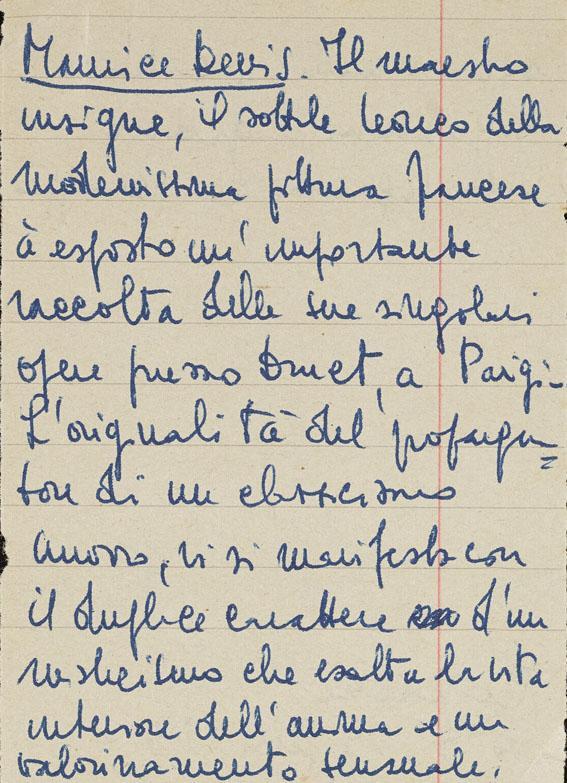 Maurice Denis. Il maestro
insigne, il sottile teorico della
modernissima pittura francese
à esposto un' importante
raccolta delle sue singolari
opere presso Druet, a Parigi.
L'originalità del propaga=
tore di un classicismo
nuovo, vi si manifesta con
il duplice carattere d'un
misticismo che esalta la vita
interiore dell'anima e un
valorinamento sensuale.